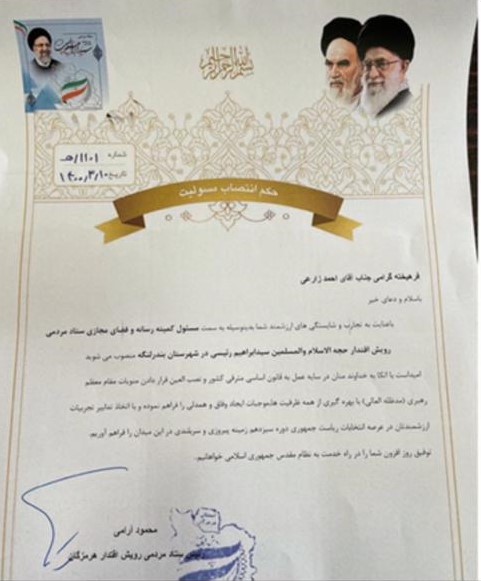 بسم الله الرحمن الرحیم
شماره ۱۱۰۱/هـ
تاریخ ۱۴۰۰/۳/۱۰
حکم انتصاب مسئولیت
فرهیخته گرامی جناب آقای احمد زارعی
باسلام و دعای خیر
باعنایت به تجارب و شایستگی های ارزشمند شما بدینوسیله به سمت مسئول کمیته رسانه و فضای مجازی ستاد مردمی
رویش اقتدار حجه الاسلام والمسلمین سیدابراهیم رئیسی در شهرستان بندرلنگه منصوب می شوید
امیداست با اتکا به خداوند منان در سایه عمل به قانون اساسی مترقی کشور و نصب العین قرار دادن منویات مقام معظم
رهبری (مدظله العالی) با بهره گیری از همه ظرفیت ها،موجبات ایجاد وفاق و همدلی را فراهم نموده و با اتخاذ تدابیر تجربیات
ارزشمندتان در عرصه انتخابات ریاست جمهوری دوره سیزدهم زمینه پیروزی و سربلندی در این میدان را فراهم آوریم.
توفیق روز افزون شما را در راه خدمت به نظام مقدس جمهوری اسلامی خواهانیم.
محمود آرامی
رئیس ستاد مردمی رویش اقتدار هرمزگان